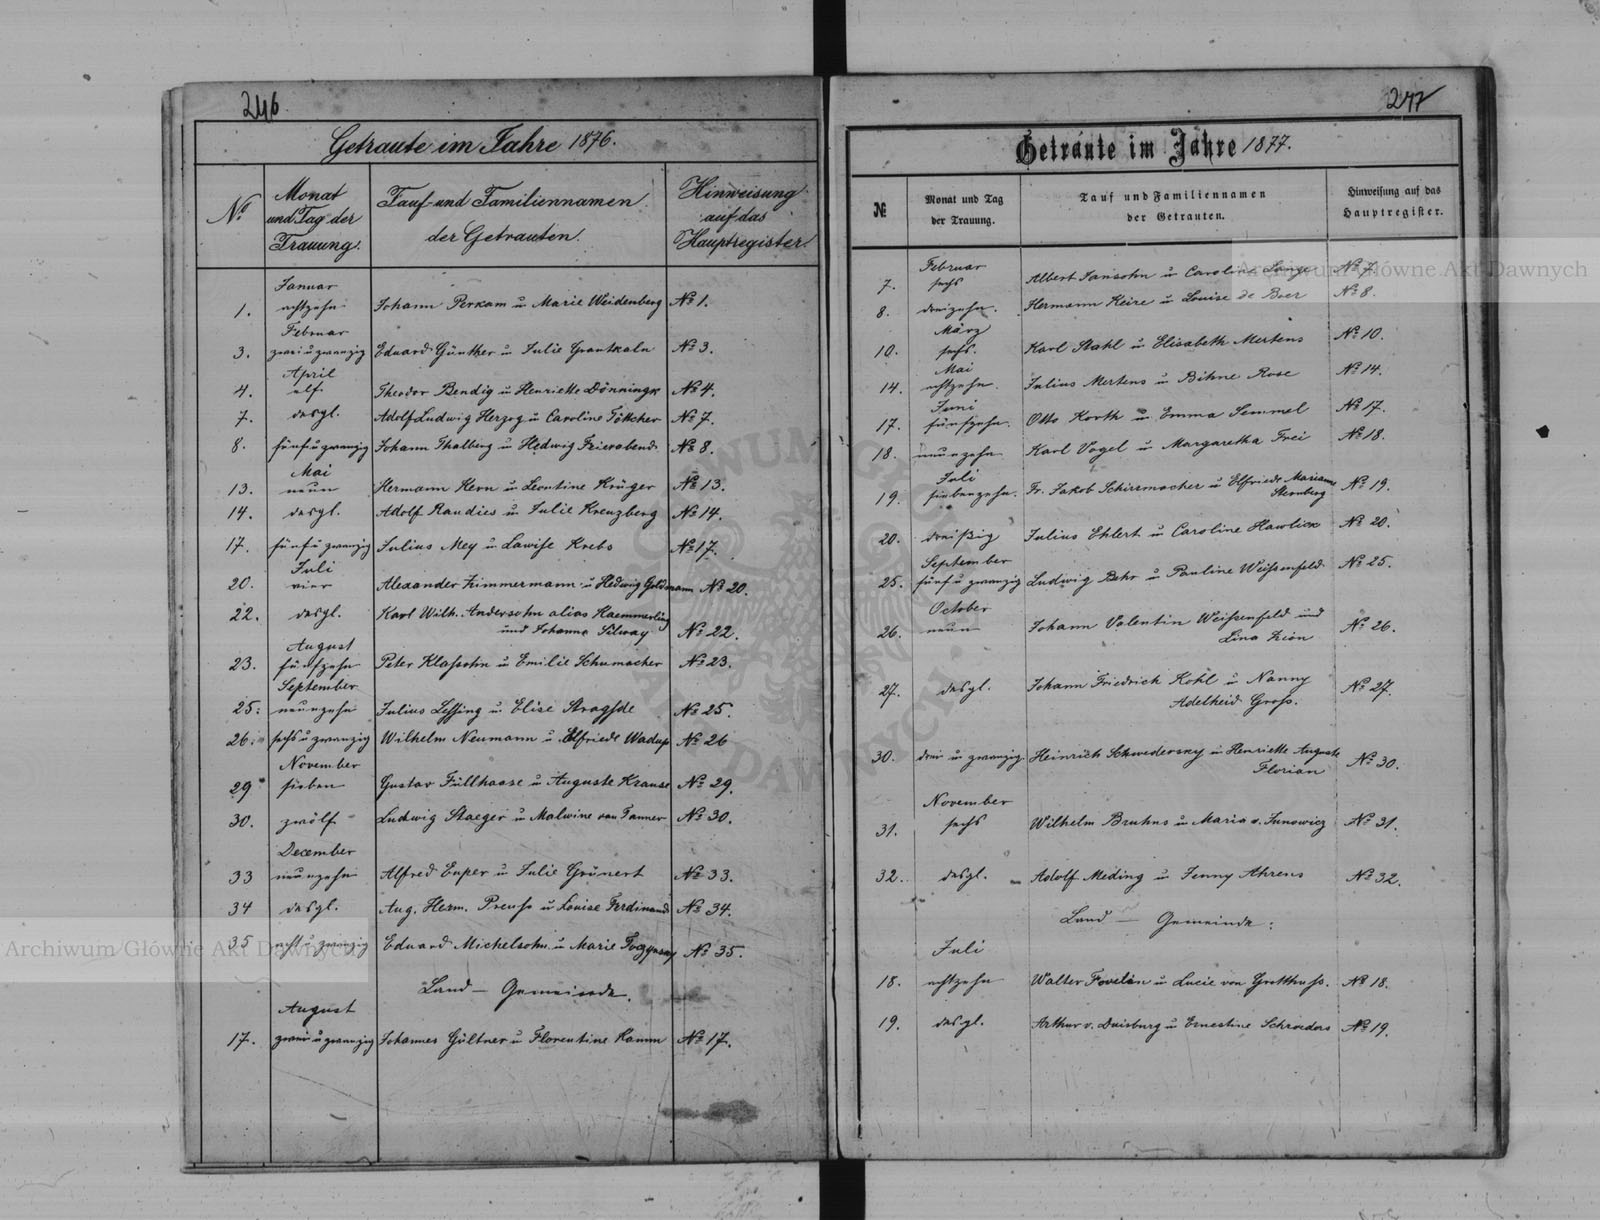 246
Getraute im Jahre 1876.
No
Monat
und Tag der
Trauung.
Tauf- und Familiennamen
der Getrauten.
Hinweisung
auf das
Hauptregister
Januar
1. achtzehn Johann Perkam u Marie Weidenberg No 1.
Februar
3. zwei u zwanzig Eduard Günther u Julie Grantkaln No 3.
April
4. elf Theodor Bendig u Henriette Dönningk No 4.
7. desgl. Adolf Ludwig Herzog u Caroline Töttcher No 7.
8. fünf u zwanzig Johann Thalberg u Hedwig Feierabend No 8.
Mai
13. neun Hermann Kern u Leontine Krüger No 13.
14. desgl. Adolf Raudies u Julie Kreuzberg No 14.
17. fünf u zwanzig Julius Mey u Lawise Krebs No 17.
Juli
20. vier Alexander Zimmermann u Hedwig Goldmann No 20.
22. desgl. Karl Wilh. Andersohn alias Kaemmerling
und Johanna Silway No 22.
August
23. fünfzehn Peter Klaßohn u Emilie Schumacher No 23.
September
25. neunzehn Julius Lessing u Elise No 25.
26. sechs u zwanzig Wilhelm Neumann u Elfriede No 26
November
29 sieben Gustav Füllhaase u Auguste Krause No 29.
30. zwölf Ludwig Staeger u Malwine van Tanner No 30.
December
33 neunzehn Alfred Euper u Julie Grünert No 33.
34 desgl. Aug. Herm. Preuß u Louise Ferdinand No 34.
35 acht u zwanzig Eduard Michelsohn u Marie No 35.
Land - Gemeinde.
August
17. zwei u zwanzig Johannes Gültner u Florentine Hamm No 17.
247
Getraute im Jahre 1877.
№
Monat und Tag
der Trauung.
Tauf und Familiennamen
der Getrauten.
Hinweisung auf das
Hauptregister.
Februar
7. sechs Albert Jansohn u Caroline Lange No 7.
8. dreizehn Hermann Keire u Louise de Boer No 8.
März
10. sechs. Karl Stahl u Elisabeth Mertens No 10.
Mai
14. achtzehn. Julius Mertens u Bihne Rose No 14.
Juni
17. fünfzehn. Otto Korth u Emma Semmel No 17.
18. neunzehn Karl Vogel u Margaretha Frei No 18.
Juli
19. siebenzehn. Fr. Jakob Schirrmacher u Elfriede Marianne
Sternberg No 19.
20. dreißig Julius Ehlert u Caroline Hawlick No 20.
September
25. fünf u zwanzig Ludwig Behr u Pauline Weißenfeld No 25.
October
26. neun Johann Valentin Weißenfeld und
Lina Zion No 26.
27. desgl. Johann Friedrich Kohl u Nanny
Adelheid Groß. No 27.
30. drei u zwanzig Heinrich Schwedersky u Henriette Auguste
Florian No 30.
November
31. sechs Wilhelm Bruhns u Maria v. Junowicz No 31.
32. desgl. Adolf Meding u Jenny Ahrens No 32.
Land - Gemeinde:
Juli
18. achtzehn Walter Fovelin u Lucie von Grotthuß. No 18.
19. desgl. Arthur v. Duisburg u Ernestine Schroeders No 19.
Archiwum Główne Akt Dawnych
Archiwum Główne Akt Dawnych